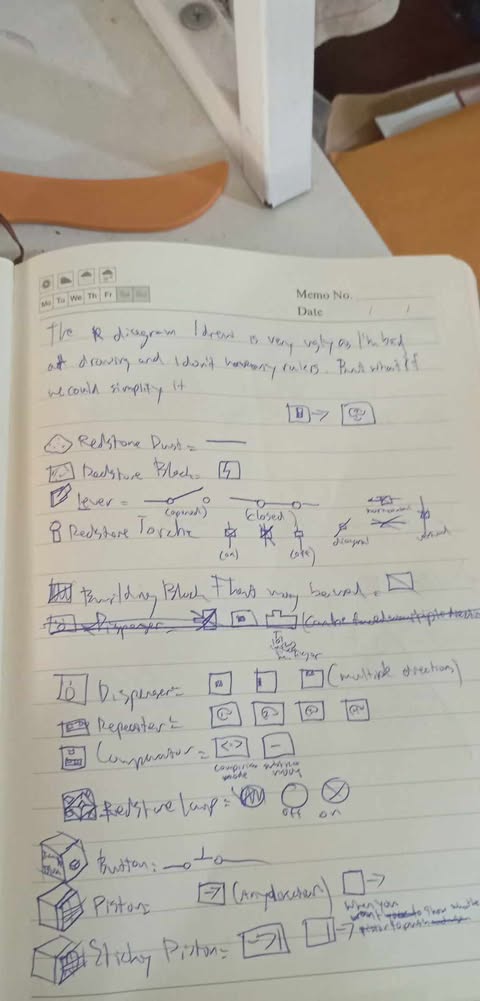 Mo Tu We Th Fr Sa Su
Memo No.
Date / /
The R diagram I drew is very ugly as I'm bad
at drawing and I don't have any rulers. But what if
we could simplify it
Redstone Dust =
Redstone Block =
Lever =
(opened) (closed)
Redstone Torch
(on) (off) diagonal horizontal
Building Block That may be used =
Dispenser
Dispenser = (multiple directions)
Repeater = 1 2 3 4
Comparator =
comparison mode
Redstone Lamp =
off on
Button =
Piston = (Any direction)
When you
want to show
Sticky Piston =